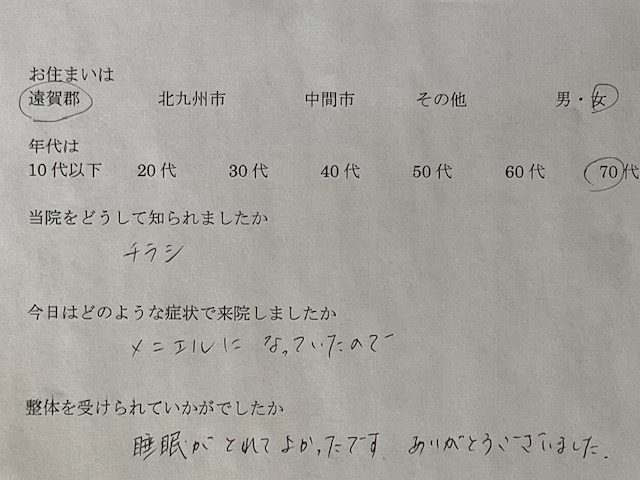 お住まいは
遠賀郡 北九州市 中間市 その他 男・女
年代は
10代以下 20代 30代 40代 50代 60代 70代
当院をどうして知られましたか
チラシ
今日はどのような症状で来院しましたか
メニエルに なっていたので
整体を受けられていかがでしたか
睡眠が とれてよかったです ありがとうございました.